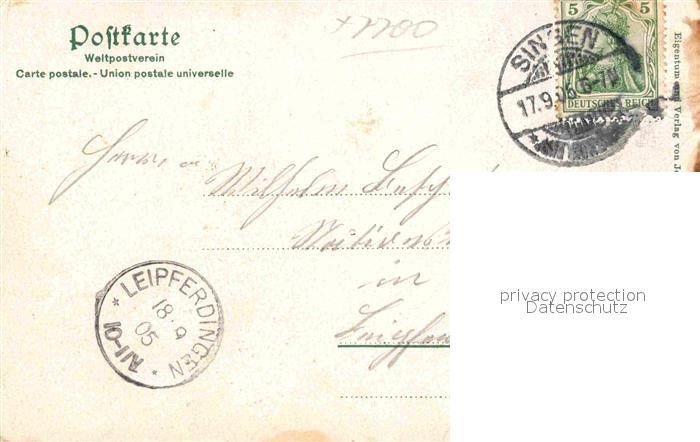 +1700
Postkarte
Weltpostverein
Carte postale. - Union postale universelle
5 5
DEUTSCHES REICH
SINGEN
17.9.05.6-7N
Eigentum und Verlag von J
Herrn
Wilhelm
in
privacy protection
Datenschutz
* LEIPFERDINGEN *
18.9
05
10-11V